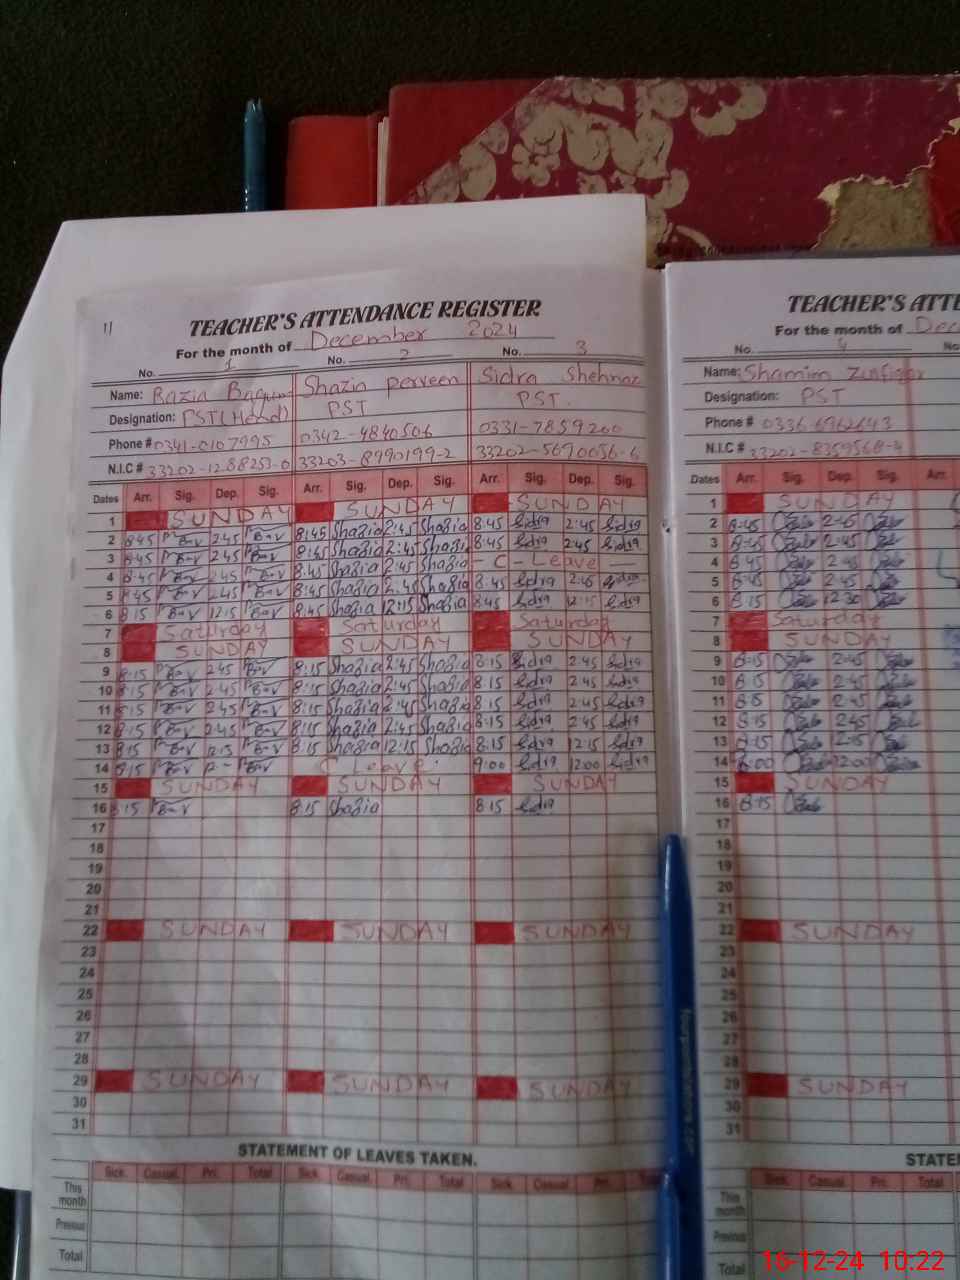 11
TEACHER'S ATTENDANCE REGISTER
For the month of December 2024
No. 1 No. 2 No. 3
Name: Razia Shazia Perveen Sidra Shehnaz
Designation: PST(Head) PST PST.
Phone # 0341-0107995 0342-4840506 0331-7859200
N.I.C # 33202-1288253-0 33203-8990199-2 33202-5690056-6
Dates Arr. Sig. Dep. Sig. Arr. Sig. Dep. Sig. Arr. Sig. Dep. Sig.
1 SUNDAY SUNDAY SUNDAY
2 8:45 2:45 8:45 Shazia 2:45 Shazia 8:45 Sidra 2:45 Sidra
3 8:45 2:45 8:45 Shazia 2:45 Shazia 8:45 Sidra 2:45 Sidra
4 8:45 2:45 8:45 Shazia 2:45 Shazia - C - Leave —
5 8:45 2:45 8:45 Shazia 2:45 Shazia 8:45 Sidra 2:45 Sidra
6 8:15 12:15 8:45 Shazia 12:15 Shazia 8:45 Sidra 12:15 Sidra
7 Saturday Saturday Saturday
8 SUNDAY SUNDAY SUNDAY
9 8:15 2:45 8:15 Shazia 2:45 Shazia 8:15 Sidra 2:45 Sidra
10 8:15 2:45 8:15 Shazia 2:45 Shazia 8:15 Sidra 2:45 Sidra
11 8:15 2:45 8:15 Shazia 2:45 Shazia 8:15 Sidra 2:45 Sidra
12 8:15 2:45 8:15 Shazia 2:45 Shazia 8:15 Sidra 2:45 Sidra
13 8:15 12:15 8:15 Shazia 12:15 Shazia 8:15 Sidra 12:15 Sidra
14 8:15 C Leave. 9:00 Sidra 12:00 Sidra
15 SUNDAY SUNDAY SUNDAY
16 8:15 8:15 Shazia 8:15 Sidra
17
18
19
20
21
22 SUNDAY SUNDAY SUNDAY
23
24
25
26
27
28
29 SUNDAY SUNDAY SUNDAY
30
31
STATEMENT OF LEAVES TAKEN.
Sick. Casual. Pri. Total Sick. Casual. Pri. Total Sick. Casual. Pri.
This month
Previous
Total
TEACHER'S ATTE
For the month of Dec
No. 4 No.
Name: Shamim
Designation: PST
Phone # 0336-6962643
N.I.C # 33202-8359568-4
Dates Arr. Sig. Dep. Sig. Arr.
1 SUNDAY
2 8:45 2:45
3 8:45 2:45
4 8:45 2:45
5 8:45 2:45
6 8:15 12:30
7 Saturday
8 SUNDAY
9 8:15 2:45
10 8:15 2:45
11 8:15 2:45
12 8:15 2:45
13 8:15
14 12:00
15 SUNDAY
16 8:15
17
18
19
20
21
22 SUNDAY
23
24
25
26
27
28
29 SUNDAY
30
31
STATE
Sick. Casual. Pri. Total
This month
Previous
Total
16-12-24 10:22